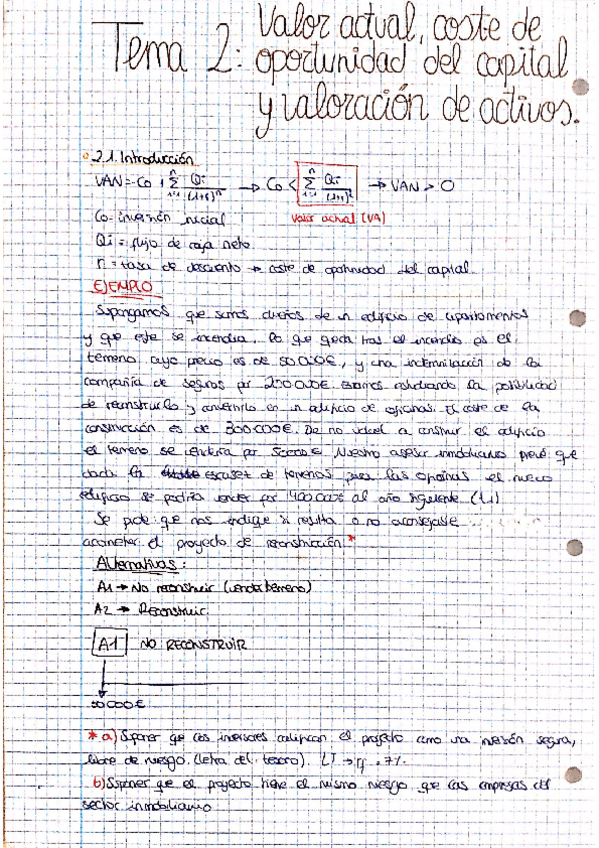 Tema 2: Valor actual, coste de
oportunidad del capital
y valoración de activos.
2.1. Introducción
VAN = -Co + Σ Qi → Co < Σ Qi → VAN > 0
Co = inversión inicial Valor actual (VA)
Qi = flujo de caja neto.
r = tasa de descuento → coste de oportunidad del capital.
EJEMPLO
Supongamos que somos dueños de un edificio de apartamentos
y que este se incendia. Lo que queda tras el incendio es el
terreno cuyo precio es de 50.000€, y una indemnización de la
compañía de seguros por 200.000€. Estamos estudiando la posibilidad
de reconstruirlo y convertirlo en un edificio de oficinas. El coste de la
construcción es de 300.000€. De no volver a construir el edificio
el terreno se vendería por 50.000€. Nuestro asesor inmobiliario prevé que
dada la escasez de terrenos para las oficinas el nuevo
edificio se podría vender por 400.000€ al año siguiente.
Se pide que nos indique si resulta o no aconsejable
acometer el proyecto de reconstrucción.*
Alternativas:
A1 → No reconstruir (vender terreno)
A2 → Reconstruir.
A1 NO RECONSTRUIR
50.000€
* a) Suponer que los inversores califican el proyecto como una inversión segura,
libre de riesgo. (letra del tesoro). LT → 7%.
b) Suponer que el proyecto tiene el mismo riesgo que las empresas del
sector inmobiliario